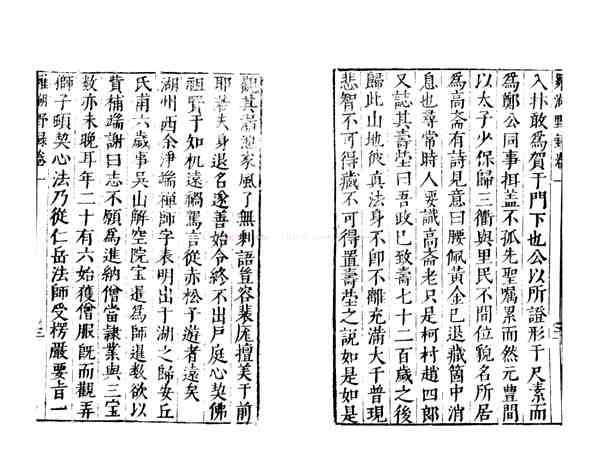 羅湖野錄卷一
入拜敢為賀于門下也公以所證形于尺素而
為鄭公同事揖盖不孤先聖囑累而然元豐間
以太子少保歸三衢與里民不間位貌名所居
為高齋有詩見意曰腰佩黃金已退藏箇中消
息也尋常時人要識高齋老只是柯村趙四郎
又誌其壽塋曰吾政已致壽七十二百歲之後
歸此山地彼真法身不即不離充滿大千普現
悲智不可得藏不可得置壽塋之說如是如是
觀其家風了無剩語豈容裴龐擅美于前
耶若夫身退名遂善始令終不出戶庭心契佛
祖賢于如机遠禍罵言從赤松子遊者遠矣
湖州西余淨端禪師字表明出于湖之歸安丘
氏甫六歲事吳山解空院宝暹為師暹數欲以
貲補端謝曰志不願為進納僧當隸業與三宝
數亦未晚耳年二十有六始獲僧服既而觀弄
獅子頓契心法乃從仁岳法師受楞嚴要旨一
羅湖野錄卷一
三